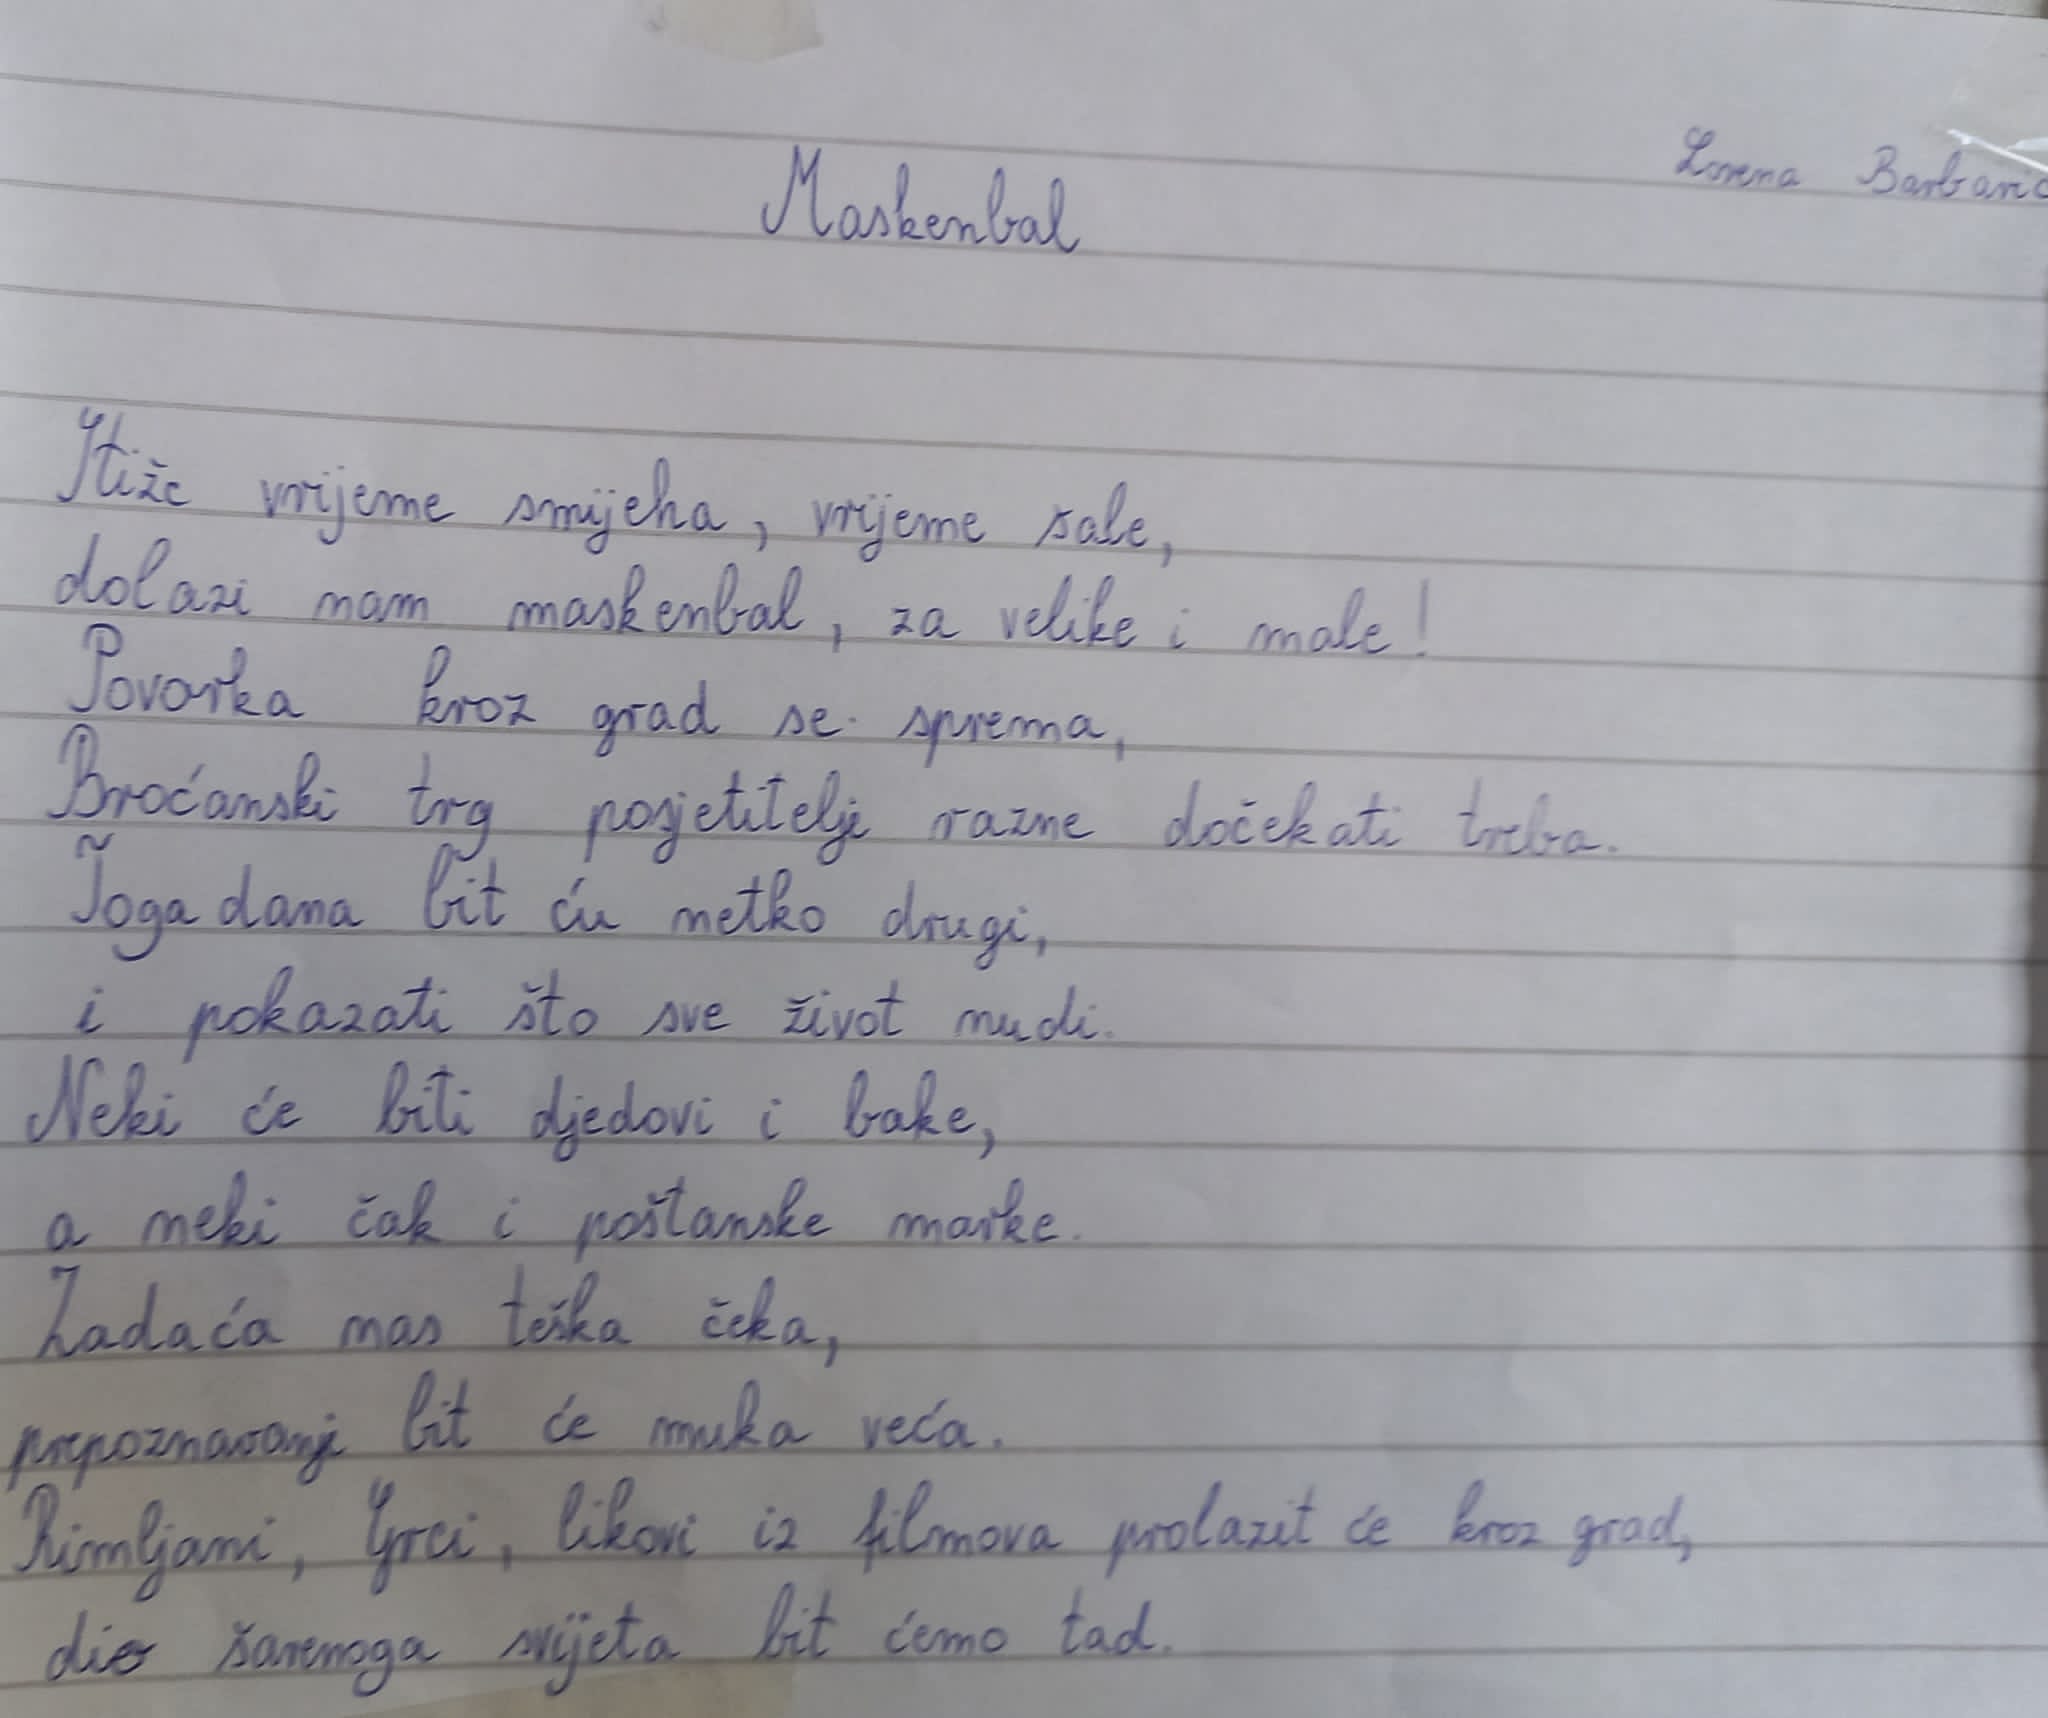 Lorena Barbarić
Maskenbal
Stiže vrijeme smijeha, vrijeme šale,
dolazi nam maskenbal, za velike i male!
Povorka kroz grad se sprema,
Broćanski trg posjetitelje razne dočekati treba.
Toga dana bit ću netko drugi,
i pokazati što sve život nudi.
Neki će biti djedovi i bake,
a neki čak i poštanske marke.
Zadaća nas teška čeka,
prepoznavanje bit će muka veća.
Rimljani, Grci, likovi iz filmova prolazit će kroz grad,
dio šarenoga svijeta bit ćemo tad.